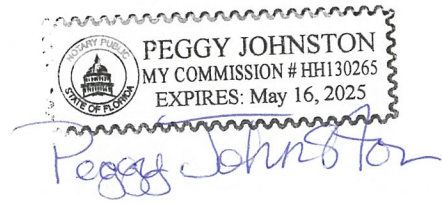 NOTARY PUBLIC
STATE OF FLORIDA
PEGGY JOHNSTON
MY COMMISSION # HH130265
EXPIRES: May 16, 2025
Peggy Johnston